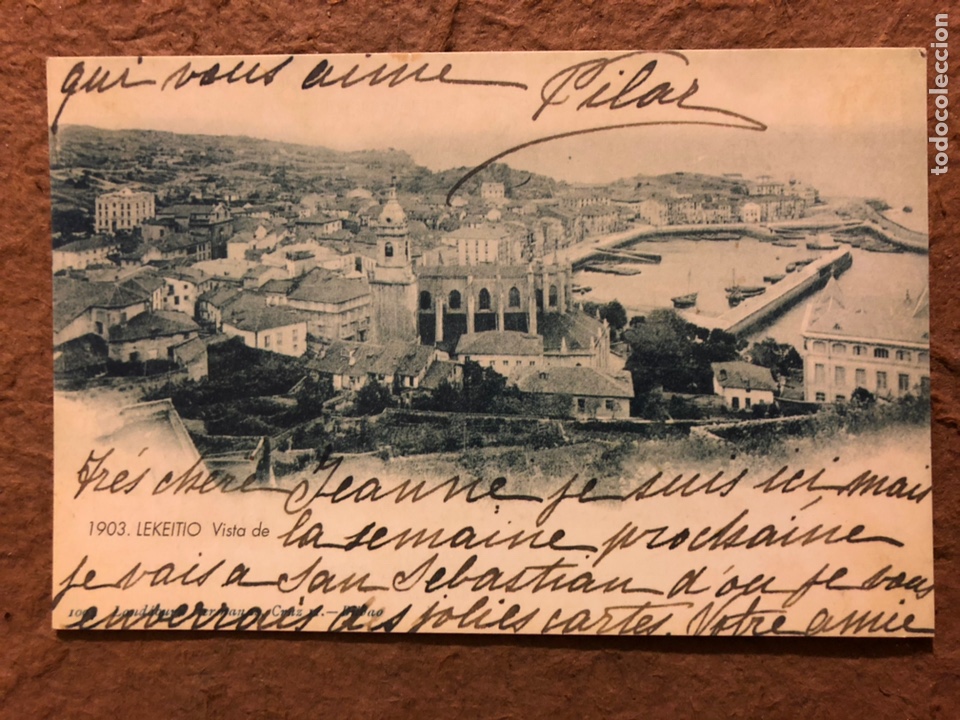 qui vous aime Pilar
Trés chére Jeanne je suis ici mais
1903. LEKEITIO Vista de
la semaine prochaine
je vais a San Sebastian d'ou je vous
Cruz - Bilbao
enverrais des jolies cartes. Votre amie
todocoleccion